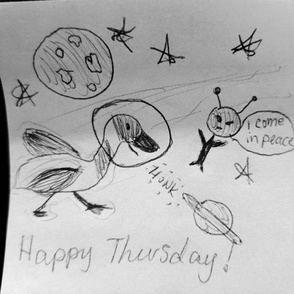 I come
in peace
HONK
Happy Thursday!